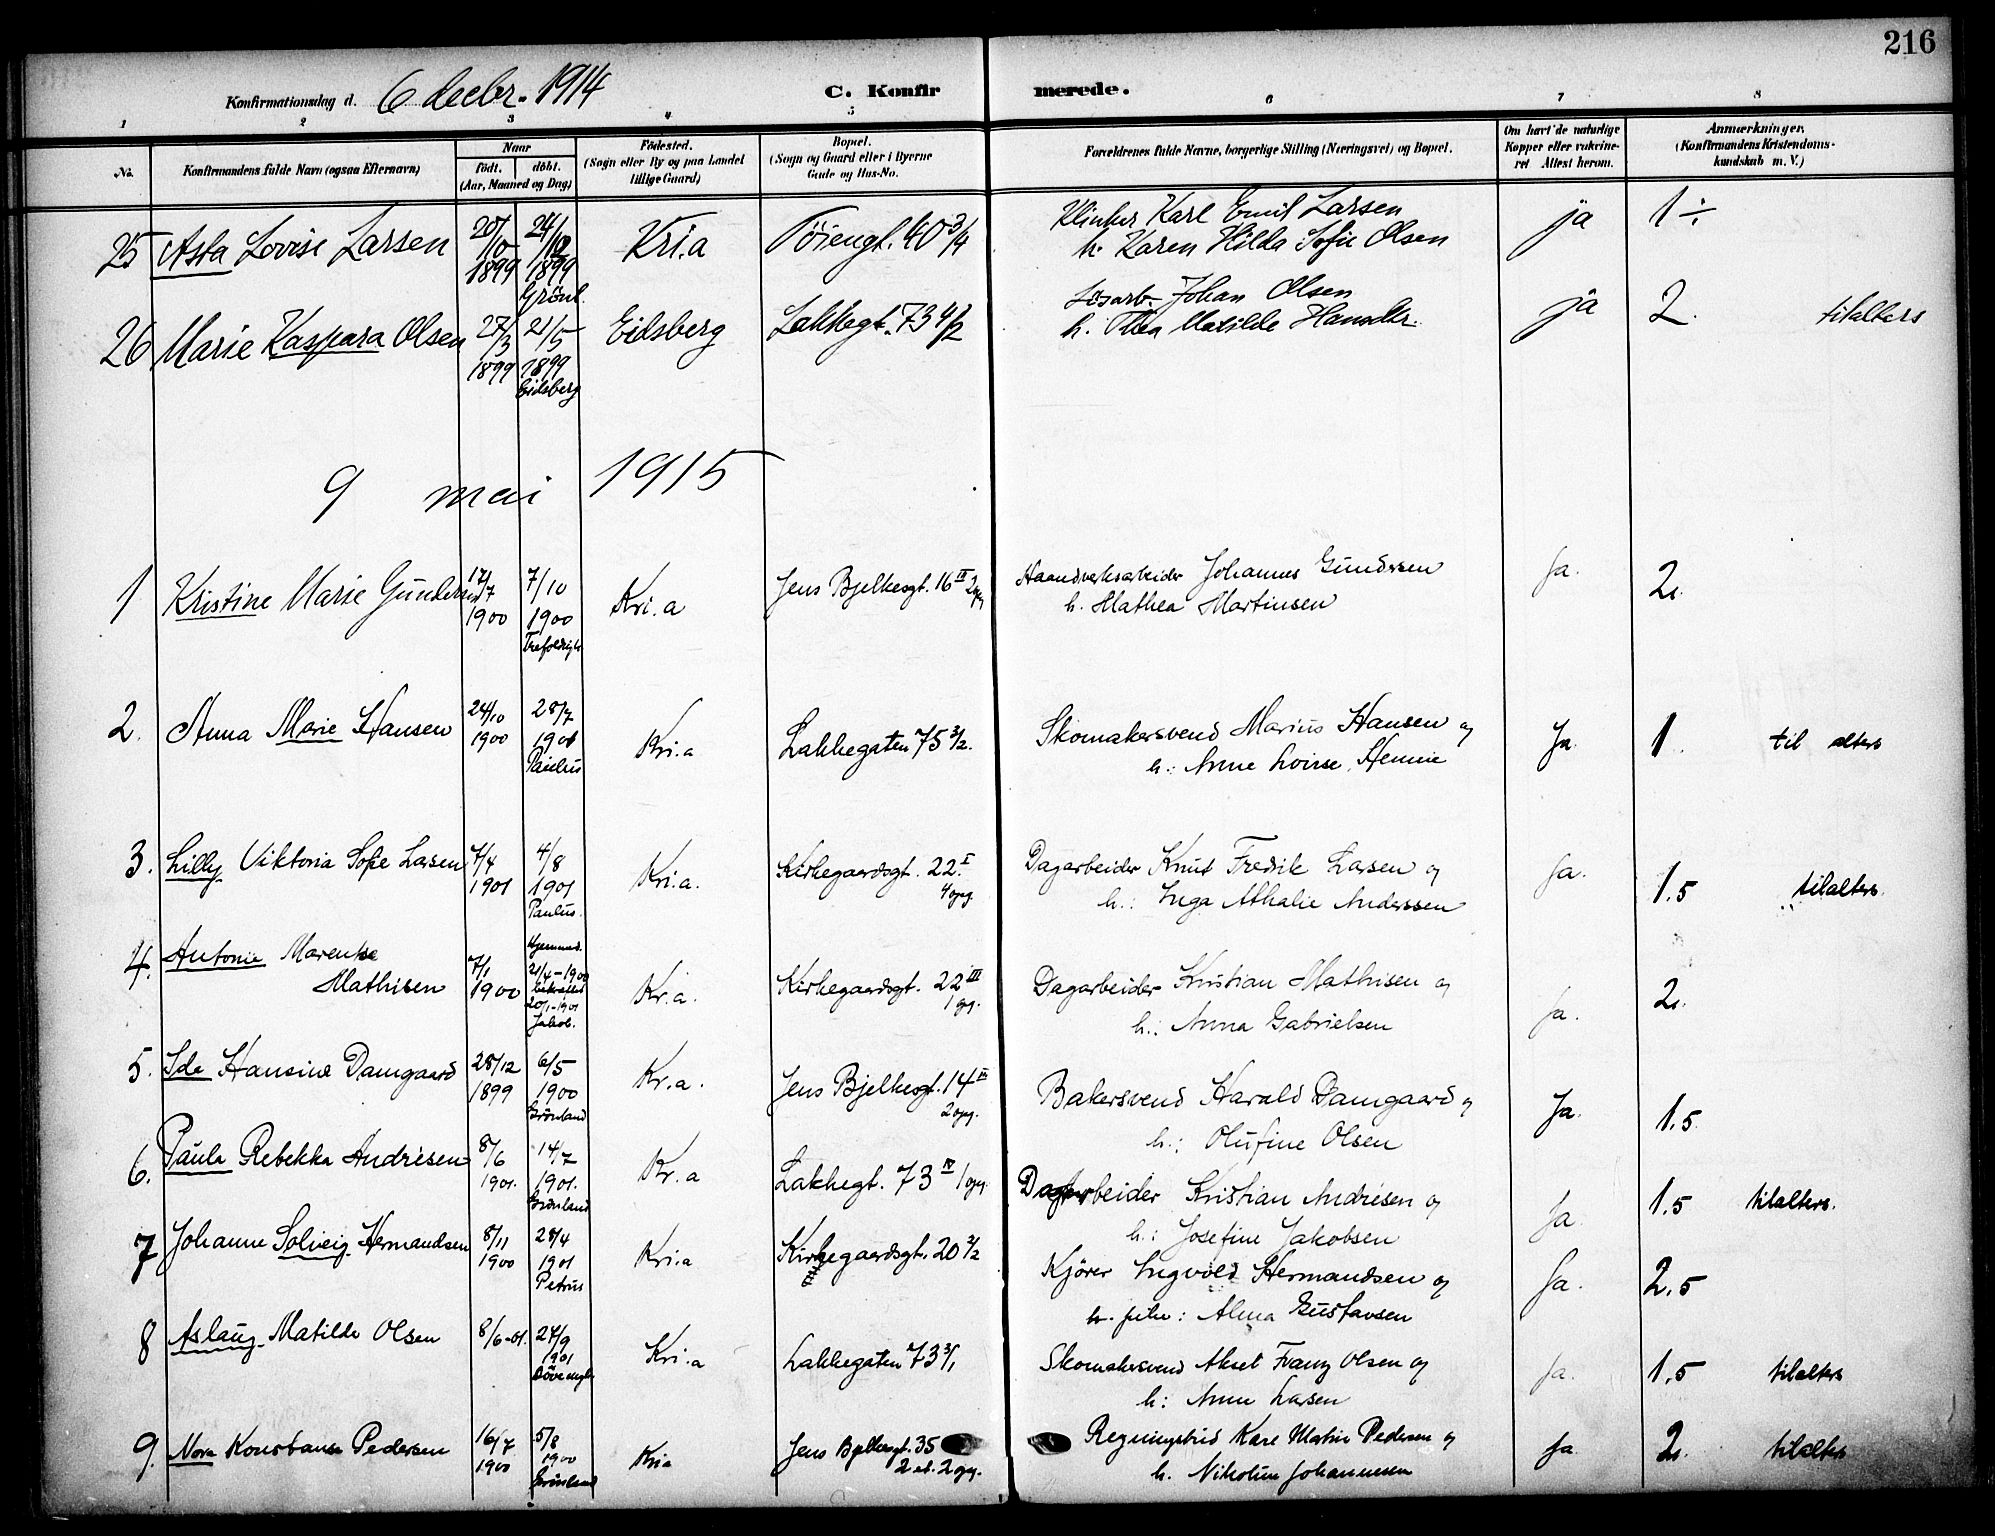 216
Konfirmationsdag d. 6 decbr. 1914
C. Konfirmerede.
1 2 3 4 5 6 7 8
No.
Konfirmandens fulde Navn (ogsaa Efternavn)
Naar
født. døbt.
(Aar, Maaned og Dag)
Fødested.
(Sogn eller By og paa Landet
tillige Gaard)
Bopæl.
(Sogn og Gaard eller i Byerne
Gade og Hus-No.
Forældrenes fulde Navne, borgerlige Stilling (Næringsvei) og Bopæl.
Om havt de naturlige
Kopper eller vakcine-
ret Attest herom.
Anmærkninger.
(Konfirmandens Kristendoms-
kundskab m. V.)
25 Asta Lovise Larsen 20/10 1899 24/12 1899 Grønl. Kri.a Töiengt. 40 3/4
Klinker Karl Emil Larsen
h. Karen Hilda Sofie Olsen
ja 1 ÷
26 Marie Kaspara Olsen 27/3 1899 21/5 1899 Eidsberg Eidsberg Lakkegt. 73 4/2
Løsarb. Johan Olsen
h. Thea Matilde
ja 2. tilalters
9 mai 1915
1 Kristine Marie Gundersen 17/7 1900 7/10 1900 Trefoldigh. Kri.a Jens Bjelkesgt. 16 II 2 opg
Haandverksarbeider Johannes Gundersen
h. Mathea Martinsen
Ja. 2.
2. Anna Marie Hansen 24/10 1900 28/7 1901 Paulus Kri.a Lakkegaten 75 3/2.
Skomakersvend Marius Hansen og
h.: Anne Lovise
Ja. 1. til alters
3. Lilly Viktoria Sofie Larsen 7/4 1901 4/8 1901 Paulus. Kri.a. Kirkegaardsgt. 22. I 4 opg.
Dagarbeider Knut Fredrik Larsen og
h.: Inga Athalie Anderssen
Ja. 1.5 tilalters.
4. Antonie Marenke
Mathisen 7/1 1900 Hjemmed. 21/4-1900 20/1-1901 Jakob. Kr.a. Kirkegaardsgt. 22 III 1 opg.
Dagarbeider Kristian Mathisen og
h.: Anna Gabrielsen
Ja. 2.
5. Ida Hansine Damgaard 28/12 1899 6/5 1900 Grönland Kr.a. Jens Bjelkesgt. 14 III 2 opg.
Bakersvend Harald Damgaard og
h.: Olufine Olsen
Ja. 1.5.
6. Paula Rebekka Andrésen 8/6 1901. 14/7 1901. Grönland Kr.a Lakkegt. 73 IV 1 opg.
Dagarbeider Kristian Andrésen og
h.: Josefine Jakobsen
Ja. 1.5 tilalters.
7 Johanne Solveig Hermandsen 8/11 1900 28/4 1901 Petrus Kri.a Kirkegaardsgt. 20 2/2
Kjörer Ingvold Hermandsen og
h. : Alma Gustavsen
Ja. 2.5
8 Aslaug Matilde Olsen 8/6-01. 24/9 1901 Kri.a Lakkegaten 73 3/1
Skomakersvend Aksel Franz Olsen og
h: Anne Larsen
Ja. 1.5 tilalters
9. Nora Konstanse Pedersen 16/7 1900 5/8 1900 Grönland Kria Jens Bjelkesgt. 35
2 et. 2 opg.
Regningsbud Karl Martin Pedersen og
h. Nikoline Johannesen
Ja. 2. tilalters